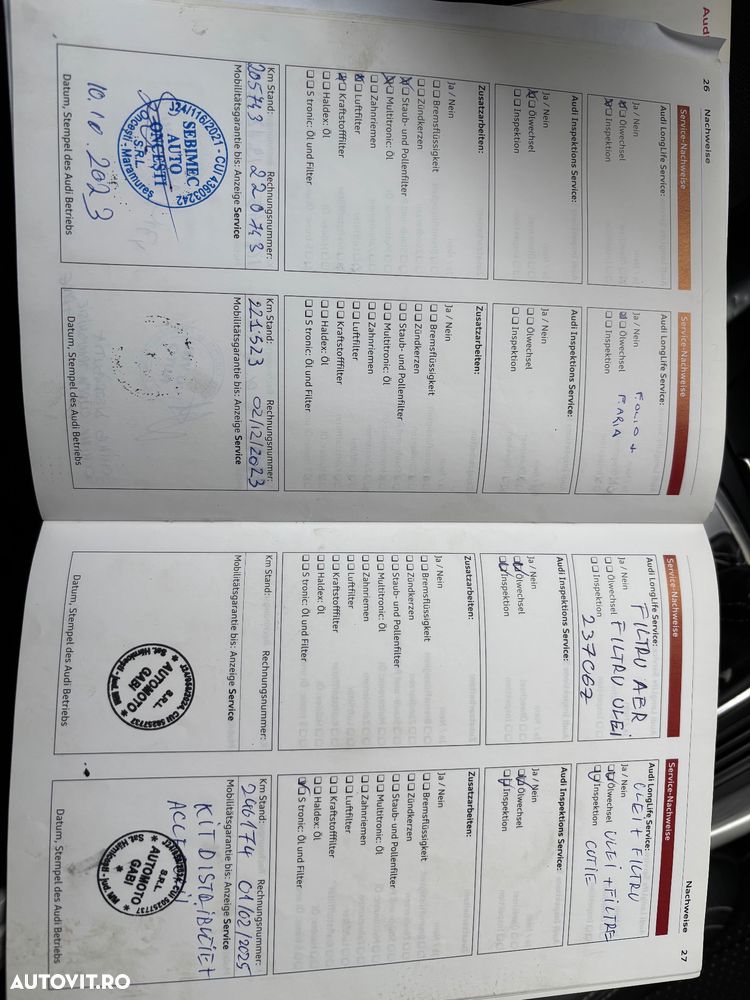 26 Nachweise
Service-Nachweise
Audi LongLife Service:
Ja / Nein
Ölwechsel
Inspektion
Audi Inspektions Service:
Ja / Nein
Ölwechsel
Inspektion
Zusatzarbeiten:
Ja / Nein
Bremsflüssigkeit
Zündkerzen
Staub- und Pollenfilter
Multitronic: Öl
Zahnriemen
Luftfilter
Kraftstofffilter
Haldex: Öl
S tronic: Öl und Filter
Km Stand: Rechnungsnummer:
205743 220743
Mobilitätsgarantie bis: Anzeige Service
J24/116/2021 - CUI 43603242
SEBIMEC
AUTO
ONCESTI
S.R.L.
Maramures
10.10.2023
Datum, Stempel des Audi Betriebs
Service-Nachweise
Audi LongLife Service:
F. ULIO +
F. ARIA
Ja / Nein
Ölwechsel
Inspektion
Audi Inspektions Service:
Ja / Nein
Ölwechsel
Inspektion
Zusatzarbeiten:
Ja / Nein
Bremsflüssigkeit
Zündkerzen
Staub- und Pollenfilter
Multitronic: Öl
Zahnriemen
Luftfilter
Kraftstofffilter
Haldex: Öl
S tronic: Öl und Filter
Km Stand: Rechnungsnummer:
221.523 02/12/2023
Mobilitätsgarantie bis: Anzeige Service
Datum, Stempel des Audi Betriebs
Service-Nachweise
Audi LongLife Service:
FILTRU AER
Ja / Nein
Ölwechsel FILTRU ULEI
Inspektion
Audi Inspektions Service:
Ja / Nein
Ölwechsel
Inspektion
Zusatzarbeiten:
Ja / Nein
Bremsflüssigkeit
Zündkerzen
Staub- und Pollenfilter
Multitronic: Öl
Zahnriemen
Luftfilter
Kraftstofffilter
Haldex: Öl
S tronic: Öl und Filter
Km Stand: Rechnungsnummer:
Mobilitätsgarantie bis: Anzeige Service
S.R.L.
AUTOMOTO
GABI
Datum, Stempel des Audi Betriebs
Nachweise 27
Service-Nachweise
ULEI + FILTRU
Audi LongLife Service:
Ja / Nein
Ölwechsel ULEI + FILTRE
Inspektion CUTIE
Audi Inspektions Service:
Ja / Nein
Ölwechsel
Inspektion
Zusatzarbeiten:
Ja / Nein
Bremsflüssigkeit
Zündkerzen
Staub- und Pollenfilter
Multitronic: Öl
Zahnriemen
Luftfilter
Kraftstofffilter
Haldex: Öl
S tronic: Öl und Filter
Km Stand: Rechnungsnummer:
246174 01/02/2025
Mobilitätsgarantie bis: Anzeige Service
KIT DISTRIBUTIE +
S.R.L.
AUTOMOTO
GABI
CUI 50257737
Datum, Stempel des Audi Betriebs
Audi
AUTOVIT.RO